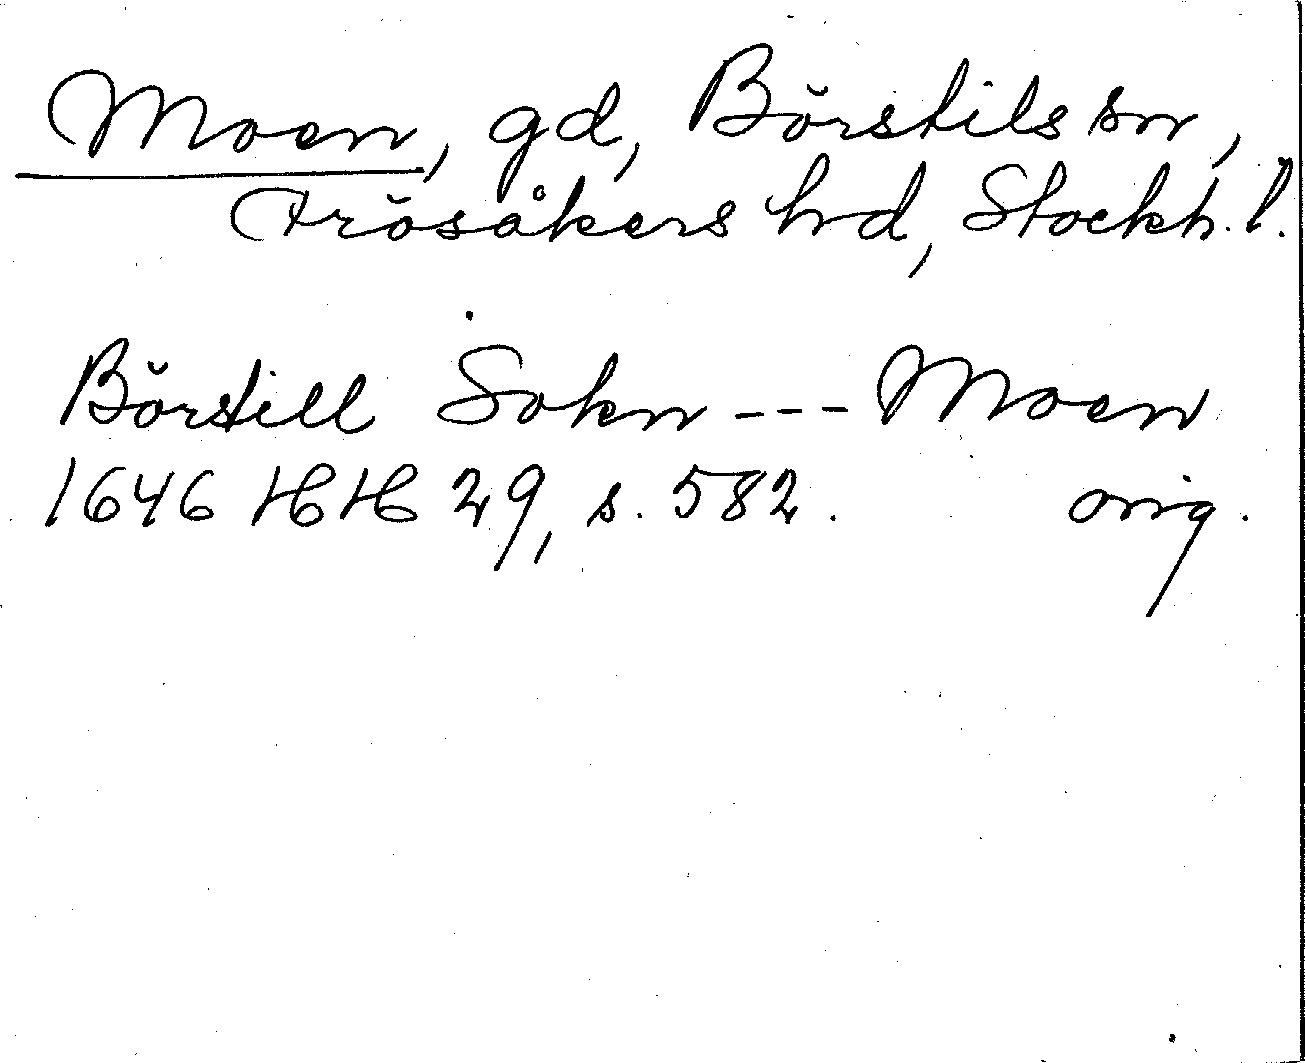 Moen, gd, Börstils sn,
Frösåkers hd, Stockh. l.
Börstill Sokn --- Moen
1646 HH 29, s. 582. orig.